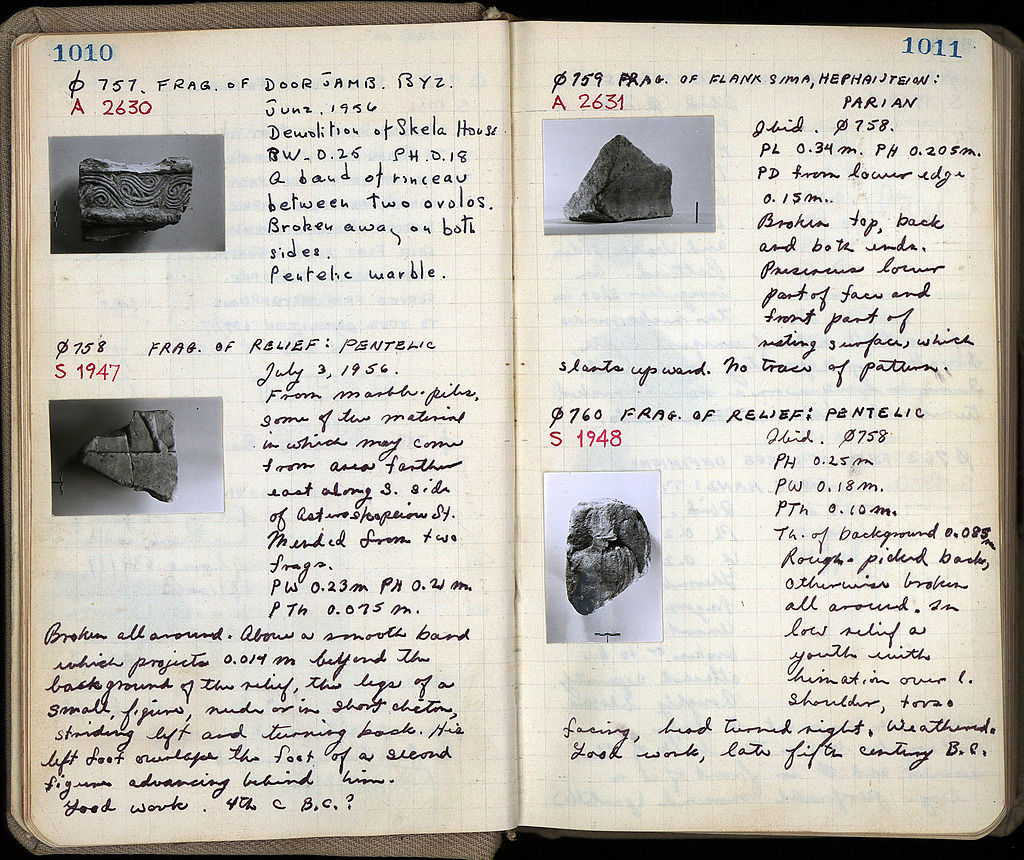 1010
φ 757. FRAG. OF DOOR JAMB. BYZ.
A 2630
June, 1956
Demolition of Skela House.
BW. 0.25 PH. 0.18
A band of rinceau
between two ovolos.
Broken away on both
sides.
Pentelic marble.
φ758 FRAG. OF RELIEF: PENTELIC
S 1947
July 3, 1956.
From marble-piles,
some of the material
in which may come
from area farther
east along S. side
of Asteroskopeiou St.
Mended from two
frags.
PW 0.23 m PH 0.21 m.
P Th 0.075 m.
Broken all around. Above a smooth band
which projects 0.014 m beyond the
background of the relief, the legs of a
small, figure, nude or in short chiton,
striding left and turning back. His
left foot overlaps the foot of a second
figure advancing behind him.
Good work. 4th C B.C.?
1011
φ759 FRAG. OF FLANK SIMA, HEPHAISTEION:
PARIAN
A 2631
Ibid. φ758.
PL 0.34 m. PH 0.205 m.
PD from lower edge
0.15 m.
Broken top, back
and both ends.
Preserves lower
part of face and
front part of
resting surface, which
slants upward. No trace of pattern.
φ760 FRAG. OF RELIEF: PENTELIC
S 1948
Ibid. φ758
PH 0.25 m
PW 0.18 m.
PTh 0.10 m.
Th. of background 0.085 m
Rough-picked back,
otherwise broken
all around. In
low relief a
youth with
himation over l.
shoulder, torso
facing, head turned right. Weathered.
Good work, late fifth century B.C.